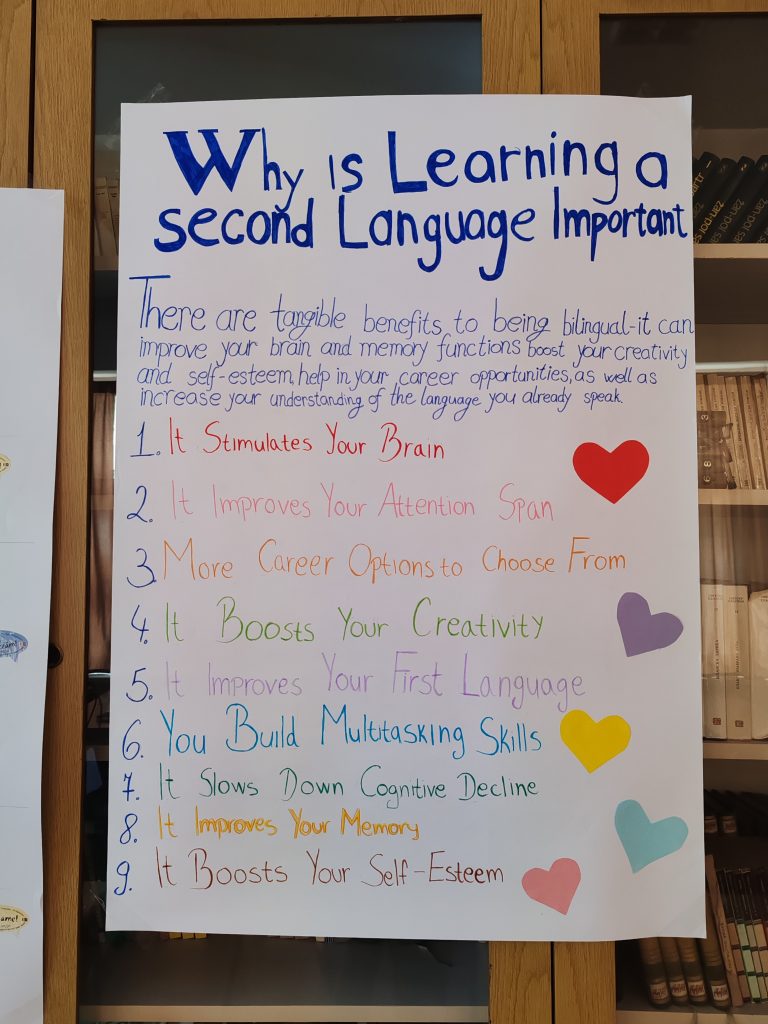 Why is Learning a
second Language Important
There are tangible benefits to being bilingual-it can
improve your brain and memory functions boost your creativity
and self-esteem, help in your career opportunities, as well as
increase your understanding of the language you already speak.
1. It Stimulates Your Brain
2. It Improves Your Attention Span
3. More Career Options to Choose From
4. It Boosts Your Creativity
5. It Improves Your First Language
6. You Build Multitasking Skills
7. It Slows Down Cognitive Decline
8. It Improves Your Memory
9. It Boosts Your Self-Esteem